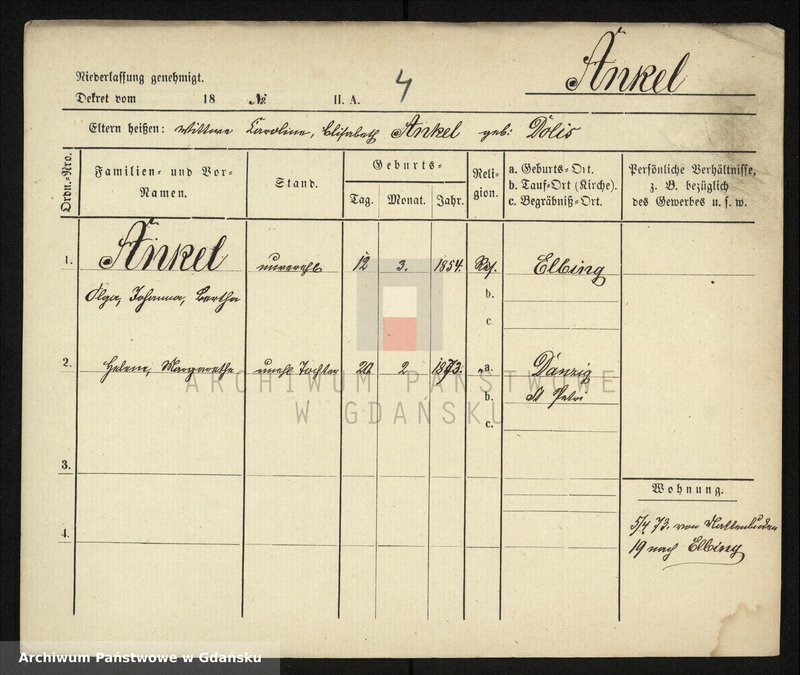 Ankel
Niederlassung genehmigt.
Dekret vom 18 № II. A. 4
Eltern heißen: Wittwe Caroline, Elisabeth Ankel geb: Dolis
Ordn.-Nro. Familien- und Vor-Namen. Stand. Geburts- Tag. Monat. Jahr. Religion. a. Geburts-Ort. b. Tauf-Ort (Kirche). c. Begräbniß-Ort. Persönliche Verhältnisse, z. B. bezüglich des Gewerbes u. s. w.
1. Ankel unverehl 12 3. 1854. Ref. Elbing
Olga, Johanna, Bertha b.
c
2. Helene, Margarethe unehl Tochter 20 2 1873. a. Danzig
b. St Petri
c.
3.
Wohnung.
5/4 73. von
4. 19 nach Elbing
ARCHIWUM PAŃSTWOWE
W GDAŃSKU
Archiwum Państwowe w Gdańsku